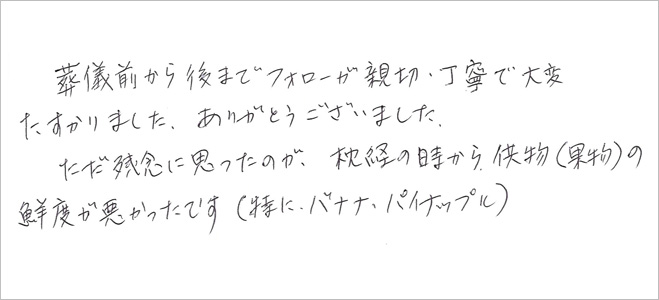 葬儀前から後までフォローが親切、丁寧で大変
たすかりました。ありがとうございました。
ただ残念に思ったのが、枕経の時から、供物(果物)の
鮮度が悪かったです(特に、バナナ、パイナップル)